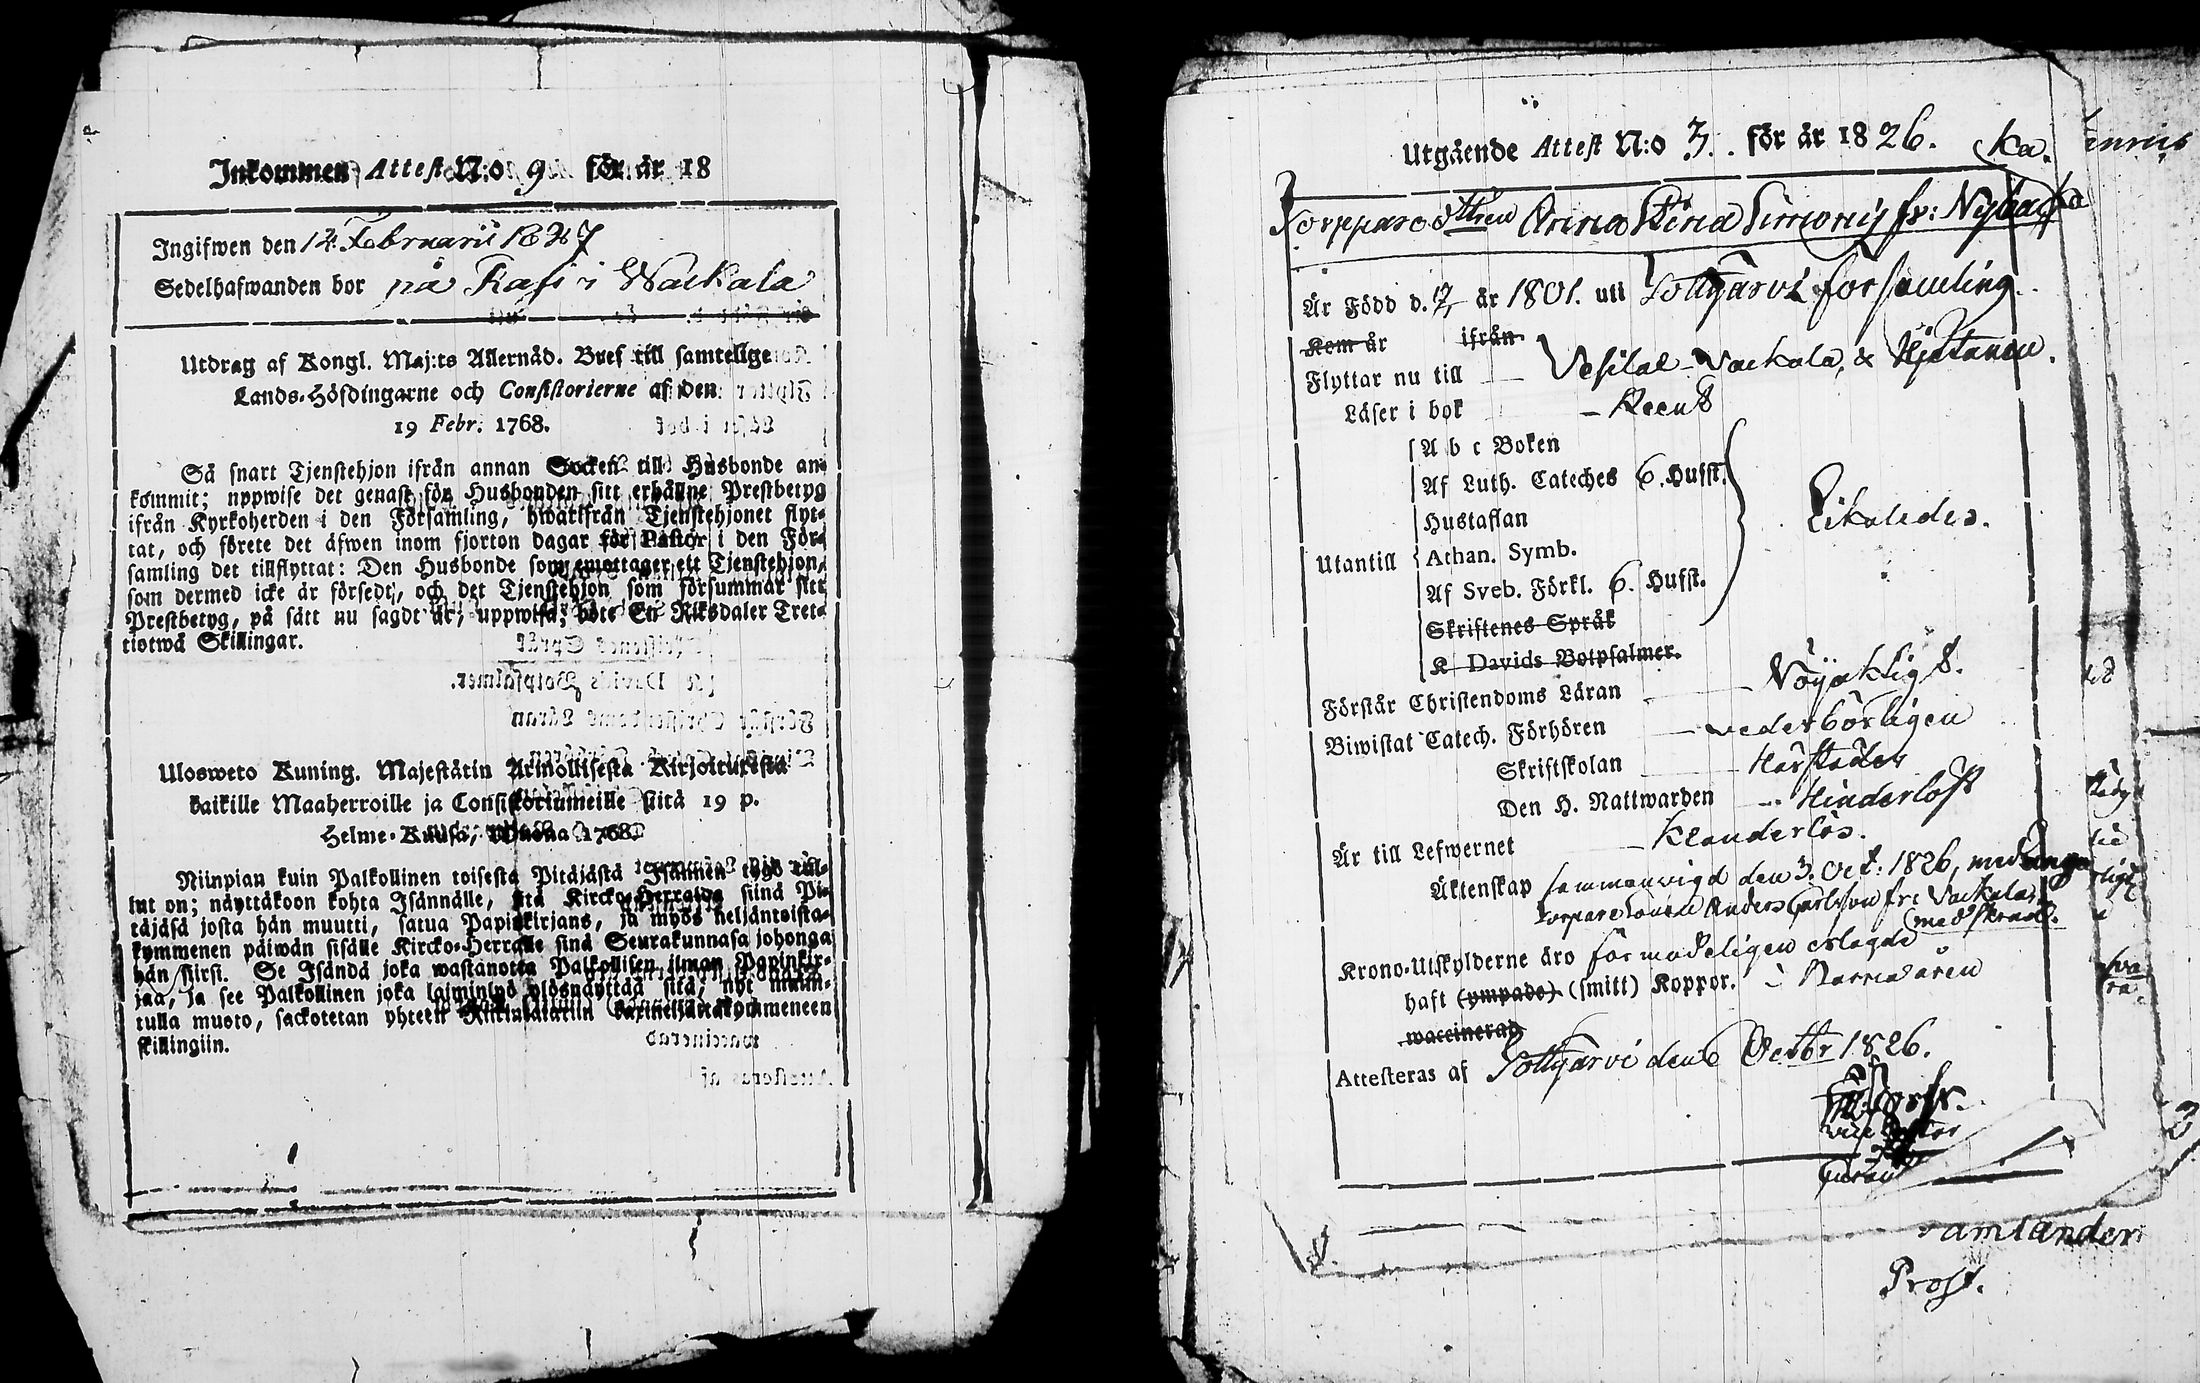 Inkommen Attest N:o 9 för år 18
Ingifwen den 12 Februarii 1827
Sedelhafwanden bor på Rasi i Wackala
Utdrag af Kongl. Maj:ts Allernåd. Bref till samtelige
Lands-Höfdingarne och Consistorierne af den
19 Febr. 1768.
Så snart Tjenstehjon ifrån annan Socken till Husbonde an-
kommit; uppwise det genast för Husbonden sitt erhållne Prestbetyg
ifrån Kyrkoherden i den Församling, hwarifrån Tjenstehjonet flyt-
tat, och förete det äfwen inom fjorton dagar för Pastor i den För-
samling det tillflyttat: Den Husbonde som emottager ett Tjenstehjon,
som dermed icke är försedt, och det Tjenstehjon som försummar sitt
Prestbetyg, på sätt nu sagdt är, uppwisa; böte En Riksdaler Tret-
tiotwå Skillingar.
Ulosweto Kuning. Majestätin Armollisesta Kirjoituxesta
kaikille Maaherroille ja Consistoriumeille siitä 19 p.
Helme-Kuusa, Wuona 1768.
Niinpian kuin Palkollinen toisesta Pitäjästä Isännän tygö tul-
lut on; näyttäkoon kohta Isännälle, sitä Kircko-Herralda siinä Pi-
täjäsä josta hän muutti, saatua Papinkirjans, ja myös neljäntoista-
kymmenen päiwän sisälle Kircko-Herralle siinä Seurakunnasa johonga
hän siirsi. Se Isändä joka wastanotta Palkollisen ilman Papinkir-
jaa, ja see Palkollinen joka laiminlyö ylösnäyttää sitä, nyt main-
tulla muoto, sackotetan yhteen Rikintalariin kaxineljättäkymmeneen
skillingiin.
Utgående Attest N:o 3. för år 1826.
Torppared:ttren Anna Stina Simonis fr: Nybacka
Är Född d. 17/7 år 1801. uti Tottijärvi församling.
Kom år ifrån
Flyttar nu till Vesilax Vackala, &
Läser i bok Rent
A b c Boken
Af Luth. Cateches 6. Hufst.
Hustaflan
Utantill Athan. Symb. Likaledes.
Af Sveb. Förkl. 6. Hufst.
Skriftenes Språk
K Davids Botpsalmer.
Förstår Christendoms Läran Nöjaktigt.
Biwistat Catech. Förhören vederbörligen
Skriftskolan
Den H. Nattwarden Hinderlöst
Är till Lefwernet Klanderlös.
Äktenskap sammanvigd den 3. Oct: 1826, med unga
torparesonen Anders Carlsson fr: Vackala,
Krono-Utskylderne äro förmodeligen erlagde
haft (ympade) (smitt) Koppor. i Barnaåren
waccinerad
Attesteras af Tottijärvi den 6 Octbr 1826.
vice Pastor
Prost.